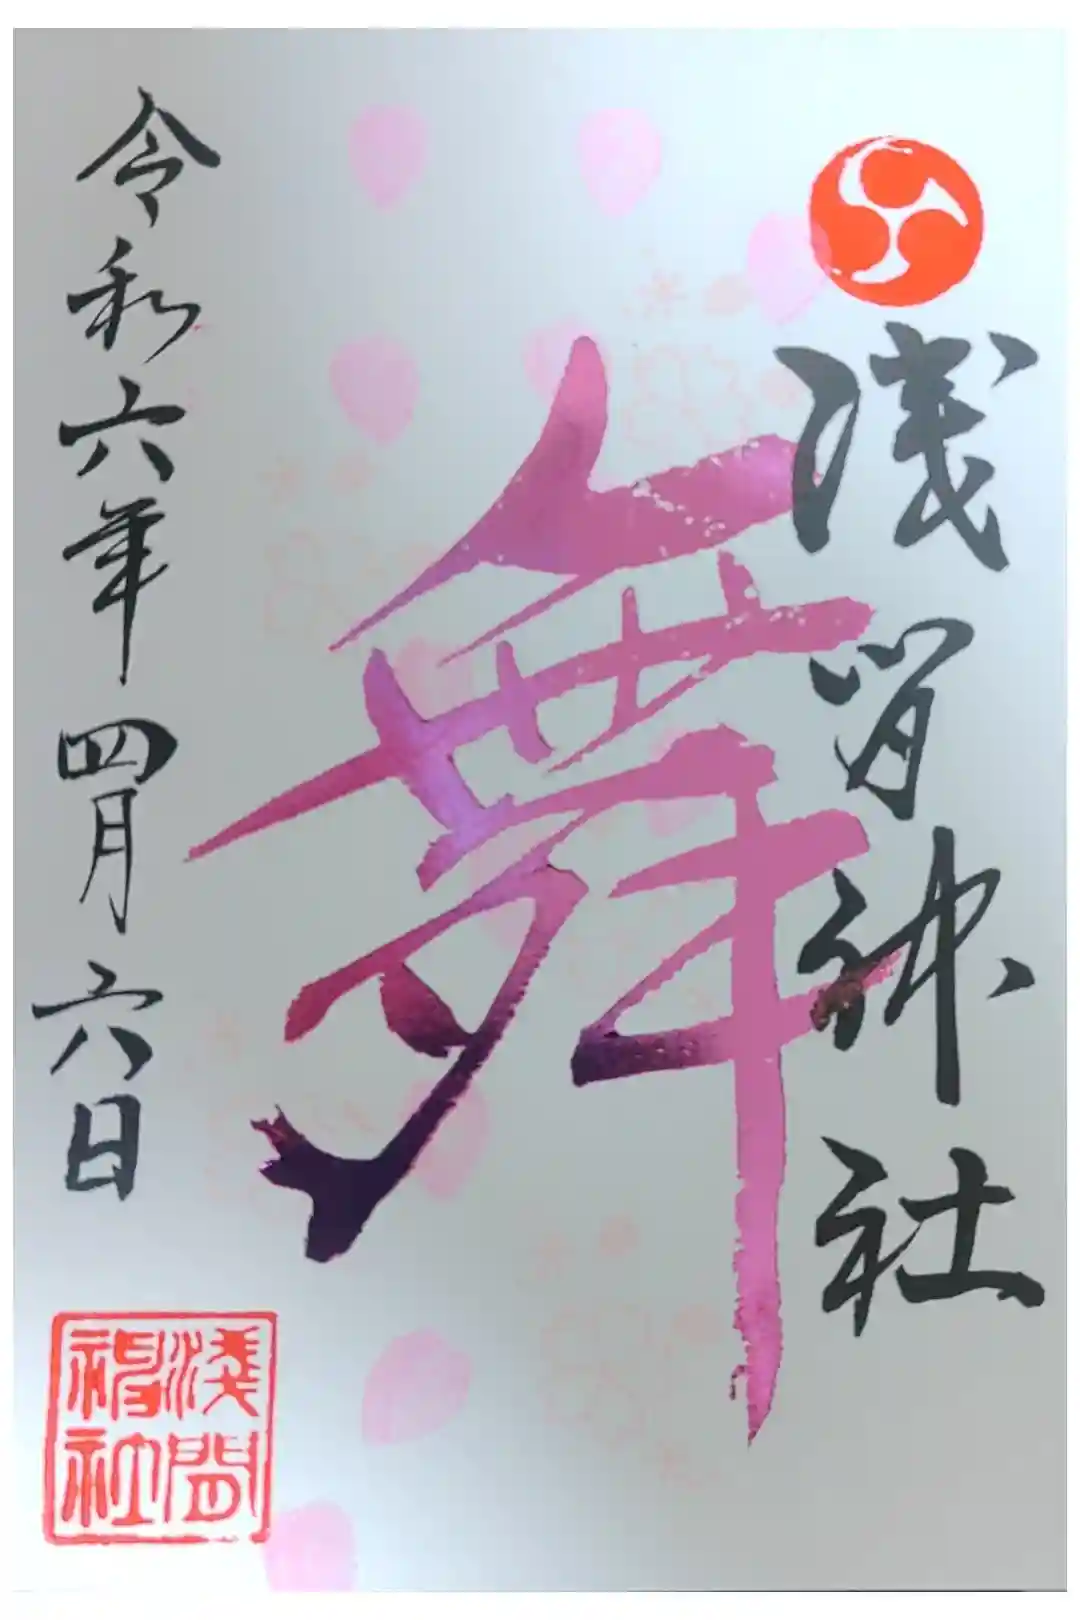 浅間神社
舞
令和六年四月六日
浅間
神社